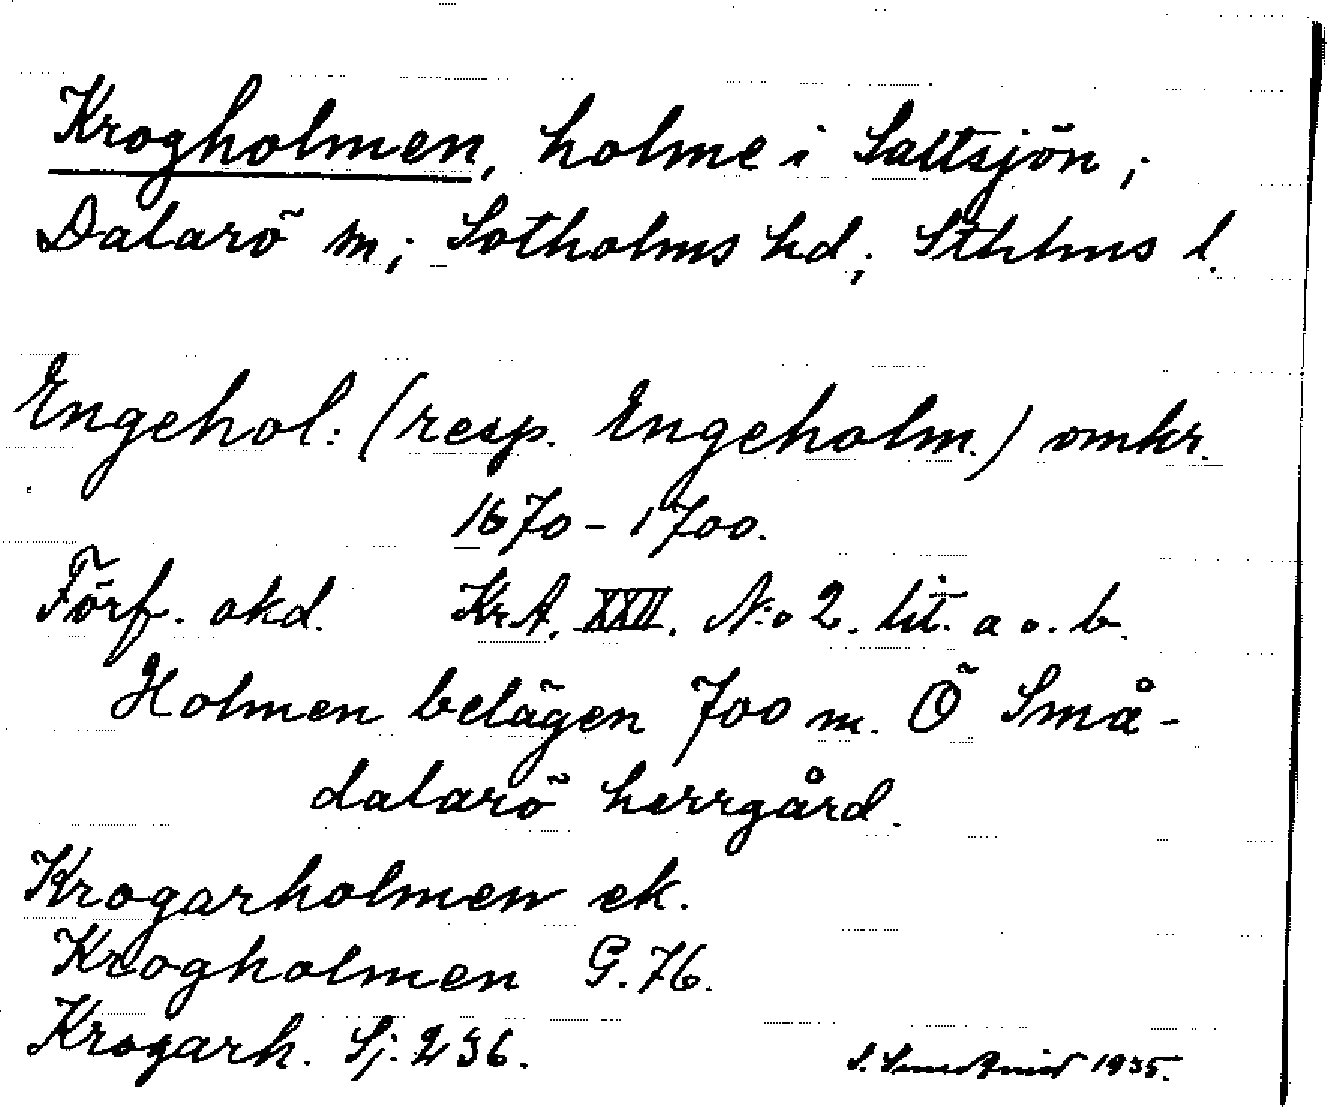 Krogholmen, holme i Saltsjön;
Dalarö sn; Sotholms hd; Sthlms l.
Engehol: (resp. Engeholm.) omkr.
1670-1700.
Förf. okd. Kr.A. XXII. N:o 2. lit. a o. b.
Holmen belägen 700 m. Ö Små-
dalarö herrgård.
Krogarholmen ek.
Krogholmen G.76.
Krogarh. Sj. 236.
S. 1935.